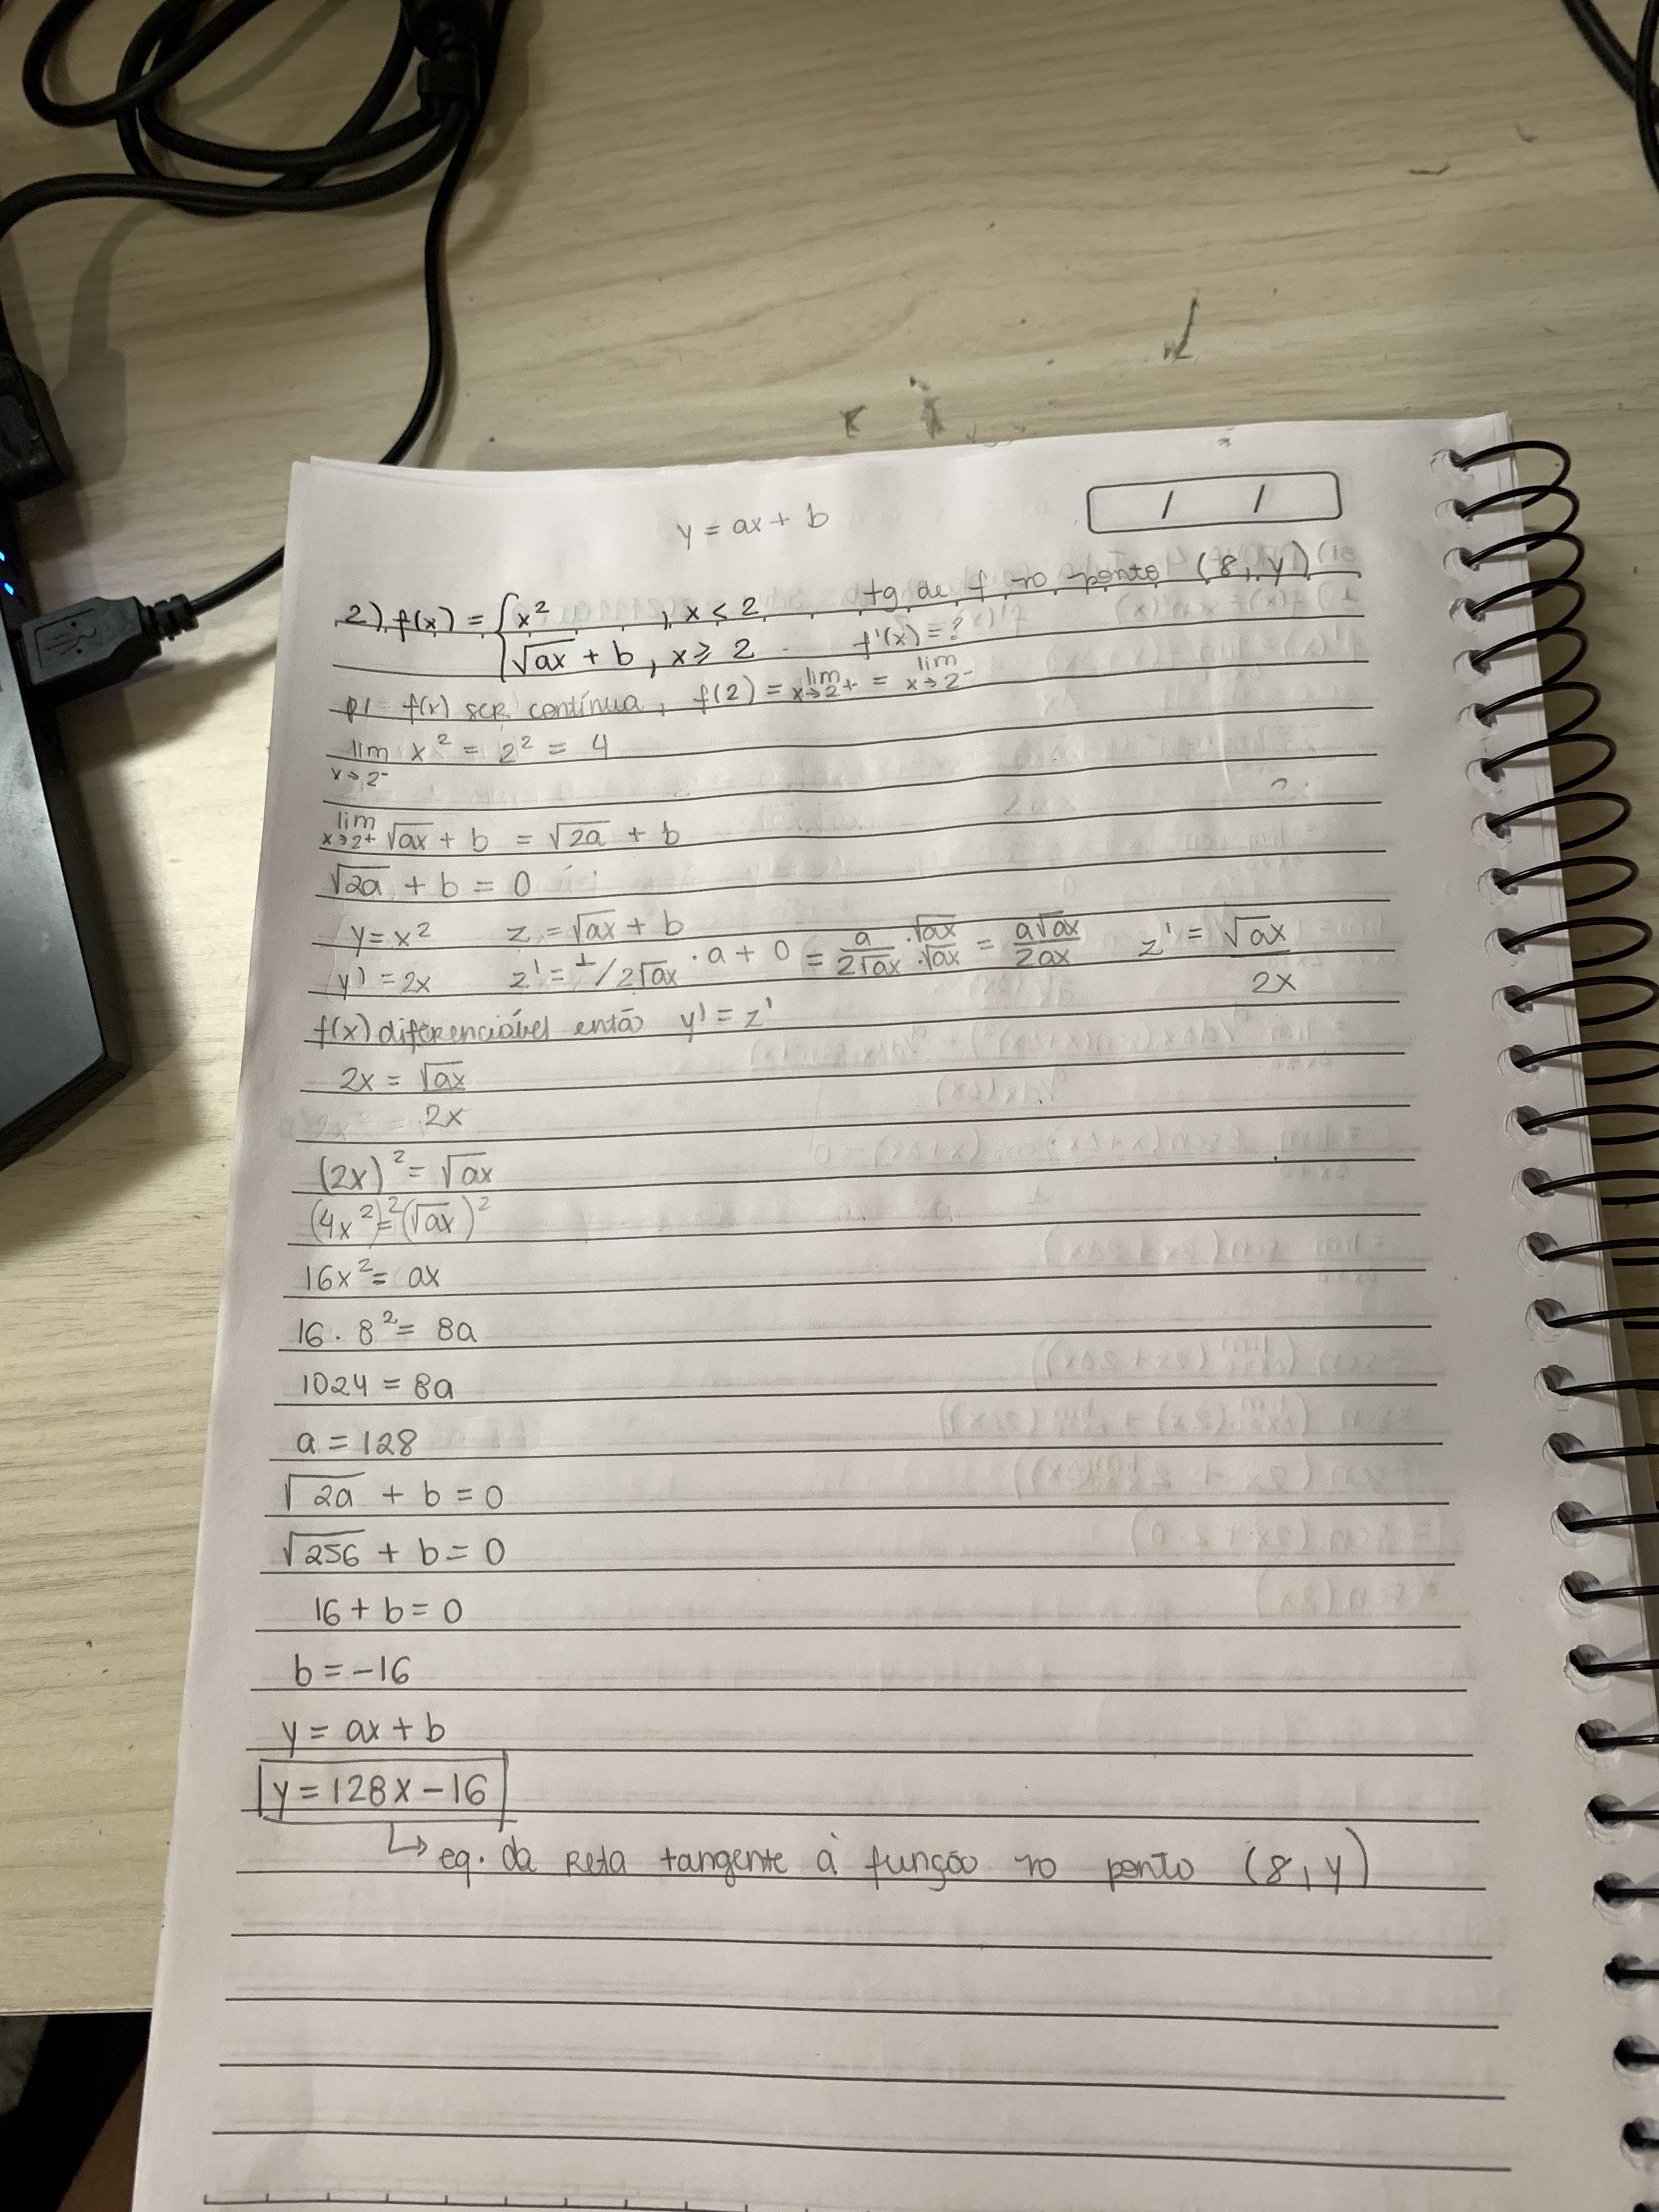 y = ax + b
/ /
2) f(x) = { x² , x < 2 tg de f no ponto (8, y)
√ax + b, x ≥ 2 f'(x) = ?
p/ f(x) ser contínua, f(2) = lim x→2+ = lim x→2-
lim x→2- x² = 2² = 4
lim x→2+ √ax + b = √2a + b
√2a + b = 0
y = x² z = √ax + b
y' = 2x z' = 1/2√ax · a + 0 = a/2√ax · √ax/√ax = a√ax/2ax z' = √ax/2x
f(x) diferenciável então y' = z'
2x = √ax/2x
(2x)² = √ax
(4x²)² = (√ax)²
16x² = ax
16 · 8² = 8a
1024 = 8a
a = 128
√2a + b = 0
√256 + b = 0
16 + b = 0
b = -16
y = ax + b
y = 128x - 16
↳ eq. da reta tangente à função no ponto (8, y)